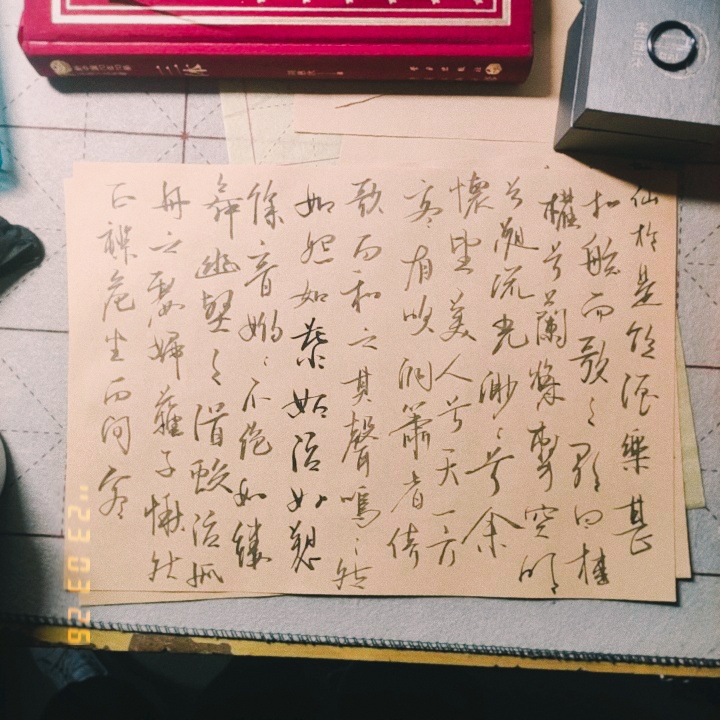 仙於是飲酒樂甚
扣舷而歌之歌曰桂
櫂兮蘭槳擊空明
兮泝流光渺々兮余
懷望美人兮天一方
客有吹洞簫者倚
歌而和之其聲嗚々然
如怨如慕如泣如愬
餘音嫋々不絕如縷
舞幽壑之潛蛟泣孤
舟之嫠婦蘇子愀然
正襟危坐而問客
'23 03 26